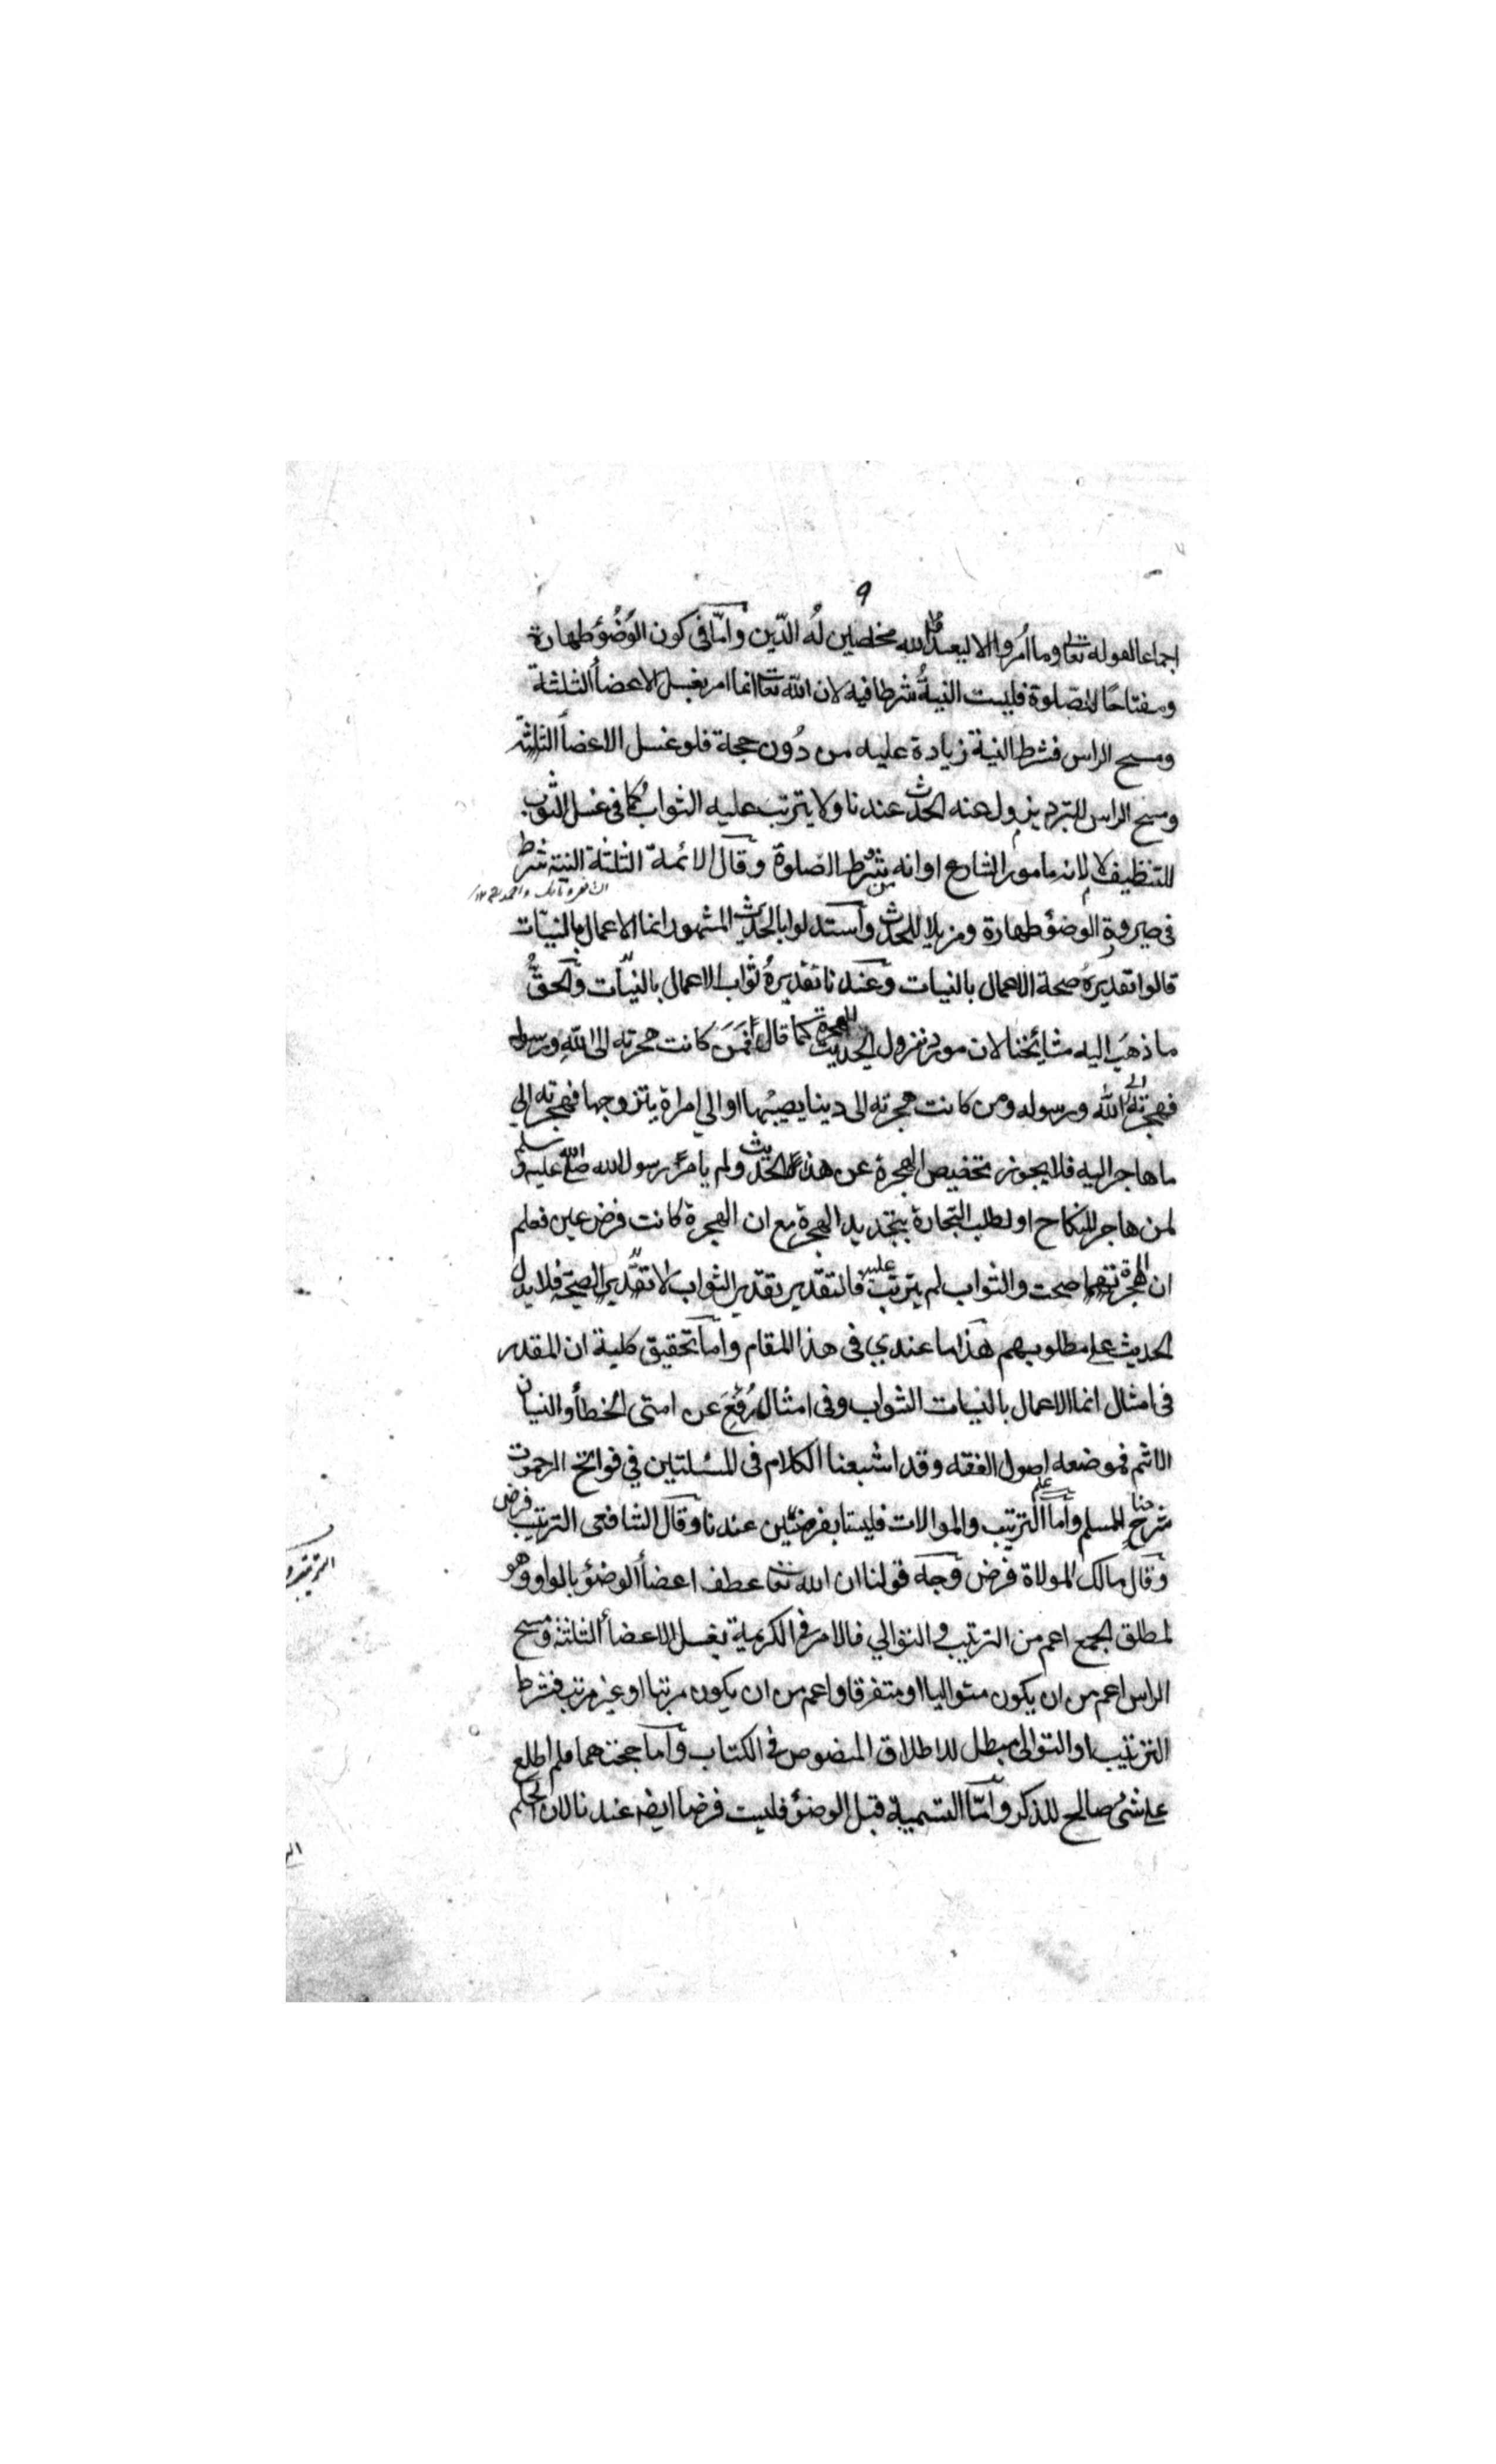 ٩
اجماعا لقوله تعا وما امروا الا ليعبدوا الله مخلصين له الدّين وامّا فى كون الوُضُوء طهارة
ومفتاحًا للصّلوة فليست النيةُ شرطا فيه لان الله تعا انما امر بغسل الاعضأ الثلثة
ومسح الراس فشرط النية زيادة عليه من دُون حجة فلو غسل الاعضأ الثلثة
ومسح الراس للتبرد يزول عنه الحدث عندنا ولا يترتب عليه الثواب كما فى غسل الثوب
للتنظيف لا لانه مامور الشارع او انه شرط الصّلوة وقال الائمة الثلثة النية شرط
فى صيرورة الوضؤ طهارة ومزيلا للحدث واستدلوا بالحديث المشهور انما الاعمال بالنيّات
قالوا تقديرهُ صحة الاعمال بالنيات وعندنا تقديرهُ ثواب الاعمال بالنيّات والحقُّ
ما ذهبَ اليه مشايُخنا لان مورد نزول الحديث الهجرة كما قال فَمَنَ كانت هجرته الى اللهِ ورسوله
فهجرتهُ الى الله ورسوله ومن كانت هجرته الى دنيا يصيبُها او الى امراة يتزوجها فهجرته الى
ما هاجر اليه فلا يجوز تخصيص الهجرة عن هذا الحديث ولم يامرْ رسول الله صلى الله عليه وسلم
لمن هاجر للنكاح او لطلب التجارة بتجديد الهجرة مع ان الهجرة كانت فرض عين فعلم
ان الهجرة نفسها صحت والثواب لم يترتب عليه فالتقدير تقدير الثواب لا تقّدير الصحة فلا يدل
الحديث على مطلوبهم هذا ما عندي فى هذا المقام واما تحقيق كلية ان المقدر
فى امثال انما الاعمال بالنيات الثواب وفى امثال رُفِعَ عن امتى الخطأ والنسيان
الاثم فموضعه اصول الفقه وقد اشبعنا الكلام فى المسئلتين في فواتح الرحموت
شرحنا على المسلم واما الترتيب والموالات فليستا بفرضين عندنا وقال الشافعى الترتيب فرض
وقال مالك الموالاة فرض وجه قولنا ان الله تعا عطف اعضأ الوضؤ بالواو وهو
لمطلق الجمع اعم من الترتيب والتوالي فالامر فى الكريمة بغسل الاعضأ الثلثة ومسح
الراس اعم من ان يكون متواليا او متفرقا واعم من ان يكون مرتبا او غير مرتب فشرط
الترتيب او التوالى مبطل للاطلاق المنصوص فى الكتاب واما حجتهما فلم اطلع
على شئ صالح للذكر وامّا التسمية قبل الوضؤ فليست فرضا ايضه عندنا لان الحكم